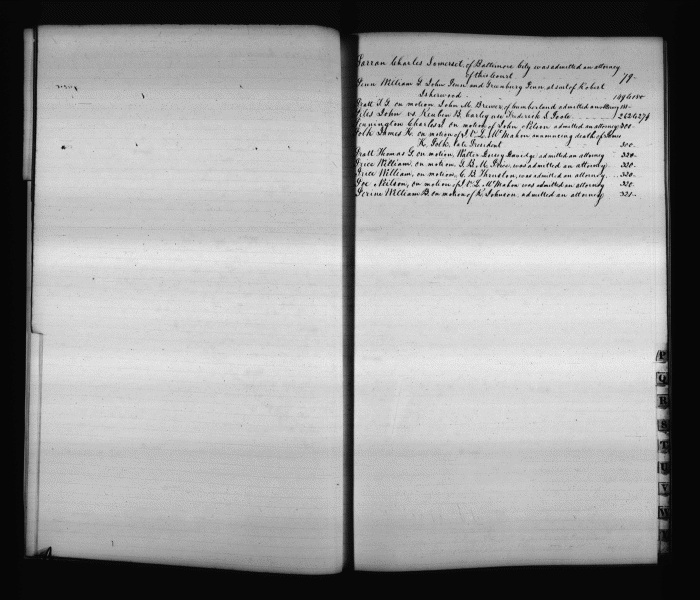 Parran Charles Somerset, of Baltimore City was admitted an attorney
of this Court 79-
Penn William G. John Penn and Greenbury Penn, at suit of Robert
Isherwood
Pratt T. G. on motion John M. Brewer, of Cumberland admitted an attorney
Piles John vs. Reuben B. Carley use Frederick S. Poole
Pennington Charles J. on motion of John Nelson admitted an attorney 300-
Polk James K. on motion of J. V. L. McMahon announcing death of James
K. Polk, late President 300
Pratt Thomas G. on motion, Walter Dorsey Davidge admitted an attorney 320-
Price William, on motion, admitted an attorney 320-
Price William, on motion, C. B. Thruston, was admitted an attorney 320-
Poe Neilson, on motion of J. V. L. McMahon was admitted an attorney 320-
Perine William B. on motion of R. Johnson, admitted an attorney 321-
P
Q
R
S
T
U
V
W